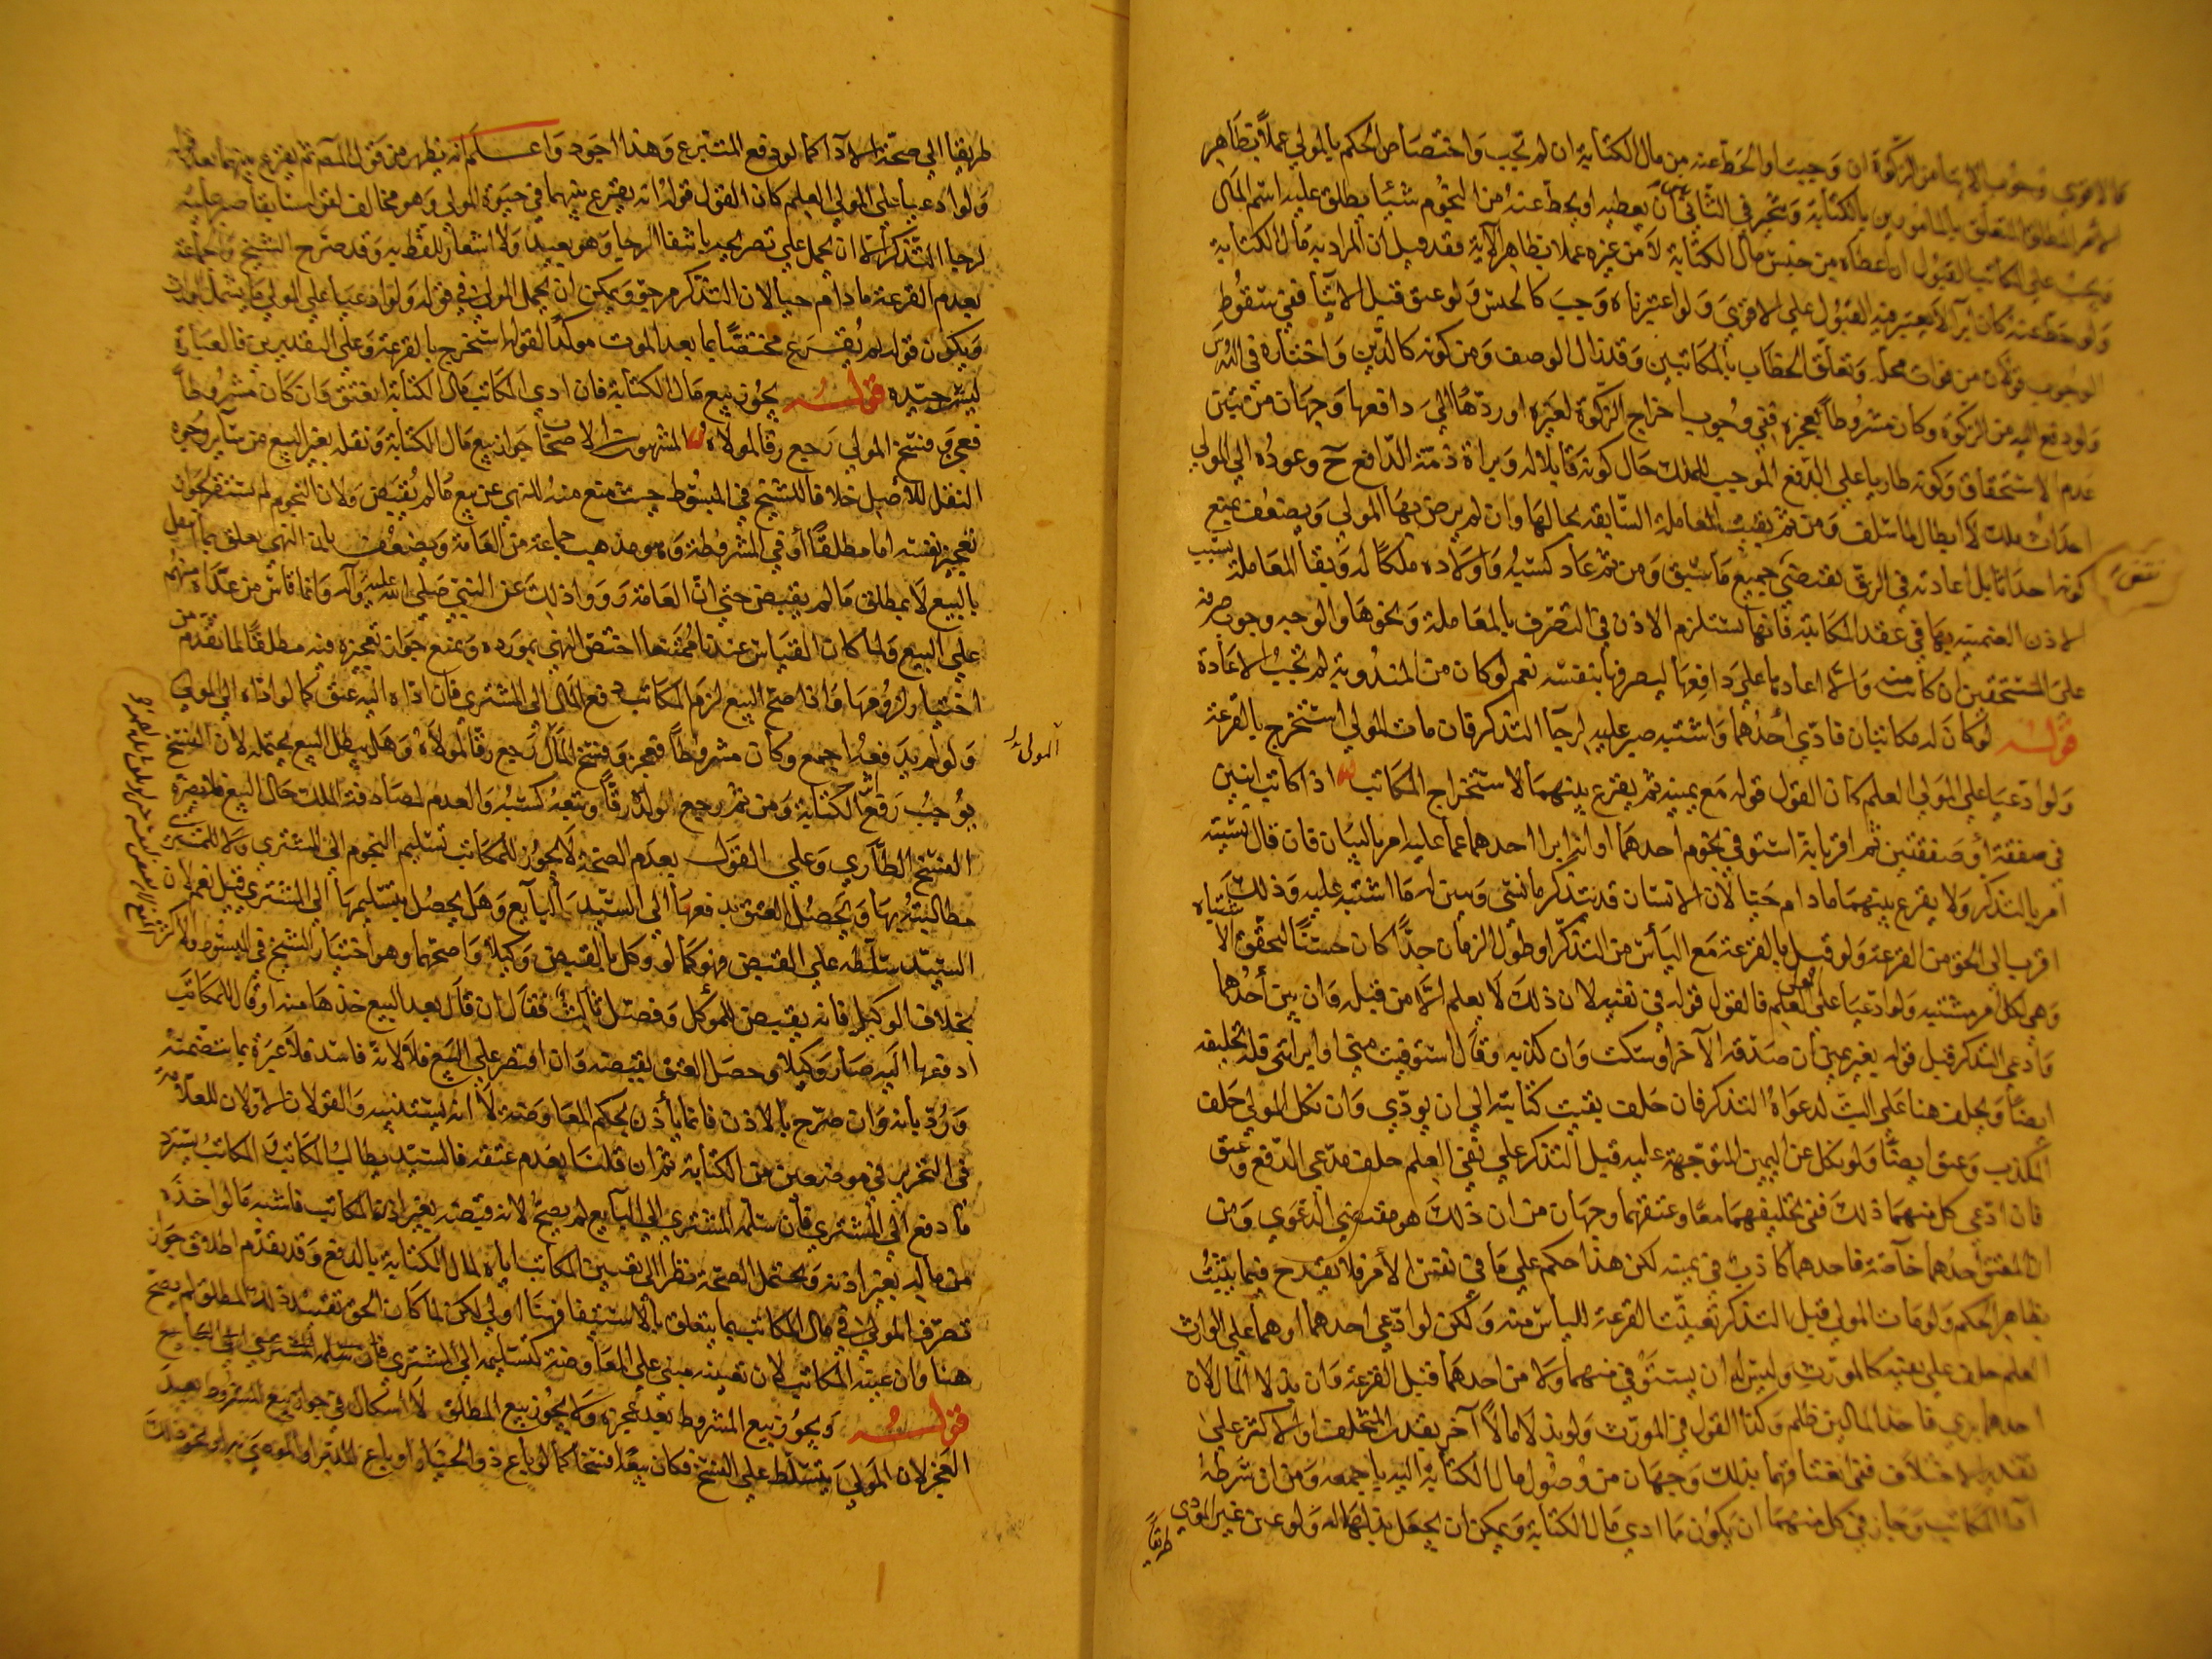 فالاقوى وجوب الايتاء من الزكوة ان وجبت او الحط عنه من مال الكتابة ان لم تجب واختصاص الحكم بالمولى عملا بظاهر
الامر المطلق المتعلق بالمأمورين بالكتابة ويتخير في الثاني بين ان يعطيه او يحط عنه من النجوم شيئا يطلق عليه اسم المال
ويجب على المكاتب القبول ان اعطاه من جنس مال الكتابة لا من غيره عملا بظاهر الآية فقد قيل ان المراد به مال الكتابة
ولو حط عنه كان ابرآء لا يعتبر فيه القبول على الاقوى ولو اعتبرناه وجب كالجنس ولو عتق قبل الايتآء ففي سقوط
الوجوب قولان من فوات محله وتعلق الخطاب بالمكاتبين وقد زال الوصف ومن كونه كالدين واختاره في الدروس
ولو دفع اليه من الزكوة وكان مشروطا فعجزه ففي وجوب اخراج الزكوة لغيره او ردها الى دافعها وجهان من تبين
عدم الاستحقاق وكونه طاريا على الدفع الموجب للملك حال كونه قابلا له وبراة ذمة الدافع ح وعوده الى المولى
احداث ملك لا ابطال لما سلف ومن ثم بقيت المعاملة السابقه بحالها وان لم يرض بها المولى ويضعف بمنع
كونه احداثا بل اعادته في الرق يقتضي جميع ما سبق ومن ثم عاد كسبه واولاده ملكا له وبقآ المعاملة بسبب
الاذن الضمنية بها في عقد المكاتبة فانها تستلزم الاذن في التصرف بالمعاملة ونحوها والوجه وجوب صرفه
على المستحقين ان كانت منه والا اعادتها على دافعها ليصرفها بنفسه نعم لو كان من المندوبة لم تجب الاعادة
قوله لو كان له مكاتبان فادى احدهما واشتبه صبر عليه لرجآ التذكر فان مات المولى استخرج بالقرعة
ولو ادعيا على المولى العلم كان القول قوله مع يمينه ثم يقرع بينهما لاستخراج المكاتب اذا كاتب اثنين
في صفقة او صفقتين ثم اقر بانه استوفى نجوم احدهما او انه ابرا احدهما عما عليه امر بالبيان فان قال نسيته
امر بالتذكر ولا يقرع بينهما ما دام حيا لان الانسان قد يتذكر ما نسى ويبين له ما اشتبه عليه وذلك
اقرب الى الحق من القرعة ولو قيل بالقرعة مع اليأس من التذكر او طول الزمان جدا كان حسنا لتحقق الاشتباه
وهي لكل امر مشتبه ولو ادعيا على المولى العلم فالقول قوله في نفيه لان ذلك لا يعلم الا من قبله وان بين احدهما
وادعى التذكر قبل قوله بغير يمين ان صدقه الآخر او سكت وان كذبه وقال استوفيت مني او ابراتني فله تحليفه
ايضا ويحلف هنا على البت لدعواه التذكر فان حلف بقيت كتابته الى ان يودي وان نكل المولى حلف
المكذب وعتق ايضا ولو نكل عن اليمين المتوجهة عليه قبل التذكر على نفي العلم حلف مدعي الدفع وعتق
فان ادعى كل منهما ذلك ففي تحليفهما معا وعتقهما وجهان من ان ذلك هو مقتضي الدعوى ومن
ان المعتق احدهما خآصة فاحدهما كاذب في يمينه لكن هذا حكم على ما في نفس الأمر فلا يقدح فيما يثبت
بظاهر الحكم ولو مات المولى قبل التذكر تعينت القرعة لليأس منه ولكن لو ادعى احدهما او هما على الوارث
العلم حلف على نفيه كالمورث وليس له ان يستوفي منهما ولا من احدهما قبل القرعة وان بذلا المال لان
احدهما بري فاخذ المالين ظلم وكذا القول في المورث ولو بذلا مالا آخر بقدر المتخلف او الاكثر على
تقدير الاختلاف ففي انعتاقهما بذلك وجهان من وصول مال الكتابة اليه باجمعه ومن ان شرطه
ادآ المكاتب وجاز في كل منهما ان يكون ما ادي مال الكتابة ويمكن ان يجعل بذلهما له ولو عين غير المودي
طريقا
نقض
طريقا الى صحة الادآ كما لو دفع المتبرع وهذا اجود واعلم انه يظهر من قول المصه ثم يقرع بينهما بعد قوله
ولو ادعيا على المولى العلم كان القول قوله انه يقرع بينهما في حيوة المولى وهو مخالف لقوله سابقا صبر عليه
لرجا التذكر الا ان يحمل على تصريحه بانتفا الرجا وهو بعيد ولا اشعار للفظ به وقد صرح الشيخ وجماعة
بعدم القرعة ما دام حيا لان التذكر مرجو ويمكن ان يحمل المولى في قوله ولو ادعيا على المولى ما يشمل الوارث
ويكون قوله ثم يقرع مختصا بما بعد الموت موكدا لقوله استخرج بالقرعة وعلى التقديرين فالعبارة
ليست جيده قوله يجوز بيع مال الكتابة فان ادى المكاتب مال الكتابة انعتق وان كان مشروطا
فعجز وفسخ المولى رجع رقا لمولاه المشهور بين الاصحاب جواز بيع مال الكتابة ونقله بغير البيع من سآير وجوه
النقل للاصل خلافا للشيخ في المبسوط حيث منع منه للنهي عن بيع ما لم يقبض ولان النجوم لم تستقر لجواز
تعجيزه نفسه اما مطلقا او في المشروطة وهو مذهب جماعة من العامة ويضعف بان النهي تعلق بما انتقل
بالبيع لا بمطلق ما لم يقبض حتى ان العامة رووا ذلك عن النبي صلى الله عليه وآله وانما قاس من عداه منهم
على البيع ولما كان القياس عندنا ممتنعا اختص النهي بمورده ويمنع جواز تعجيزه فيه مطلقا لما تقدم من
اختيار لزومها واذا صح البيع لزم المكاتب دفع المال الى المشتري فان اداه اليه عتق كما لو اداه الى المولى
ولو لم يدفعه اجمع وكان مشروطا فعجز وفسخ المال رجع رقا لمولاه وهل يبطل البيع يحتمله لان الفسخ
يوجب رفع اثر الكتابة ومن ثم رجع ولده رقا وتبعه كسبه والعدم لمصادفة الملك حال البيع فلا يضره
الفسخ الطآري وعلى القول بعدم الصحة لا يجوز للمكاتب تسليم النجوم الى المشتري ولا للمشتري
مطالبته بها ويحصل العتق بدفعها الى السيد البآيع وهل يحصل بتسليمها الى المشتري قيل نعم لان
السيد سلطه على القبض فهو كما لو وكل بالقبض وكيلا واصحهما وهو اختيار الشيخ في المبسوط والاكثر
بخلاف الوكيل فانه يقبض للموكل وفصل ثالث فقال ان قال بعد البيع خذها منه او قال للمكاتب
ادفعها اليه صار وكيلا وحصل العتق بقبضه وان اقتصر على البيع فلا لانه فاسد فلا عبرة بما تضمنه
ورد بانه وان صرح بالاذن فانما يأذن بحكم المعاوضة لا انه يستنيبه والقولان الاولان للعلامة
في التحرير في موضعين من الكتابة ثم ان قلنا بعدم عتقه فالسيد يطالب المكاتب والمكاتب يسترد
ما دفع الى المشتري فان سلمه المشتري الى البآيع لم يصح لانه قبضه بغير اذن المكاتب فاشبه ما لو اخذه
من ماله بغير اذنه ويحتمل الصحة نظرا الى تعيين المكاتب اياه لمال الكتابة بالدفع وقد تقدم اطلاق جواز
تصرف المولى في مال المكاتب بما يتعلق بالاستيفا فهنا اولى لكن لما كان الحق تقييد ذلك بالمطلق لم يصح
هنا وان عينه المكاتب لان تعيينه مبني على المعاوضة كتسليمه الى المشتري فان سلمه المشتري الى البآيع
قوله ويجوز بيع المشروط بعد عجزه ولا يجوز بيع المطلق لا اشكال في جواز بيع المشروط بعد
العجز لان المولى يتسلط على الفسخ فكان بيعه فسخا كما لو باع ذو الخيار او باع المدبر او الموصى به او نحو ذلك
المولى